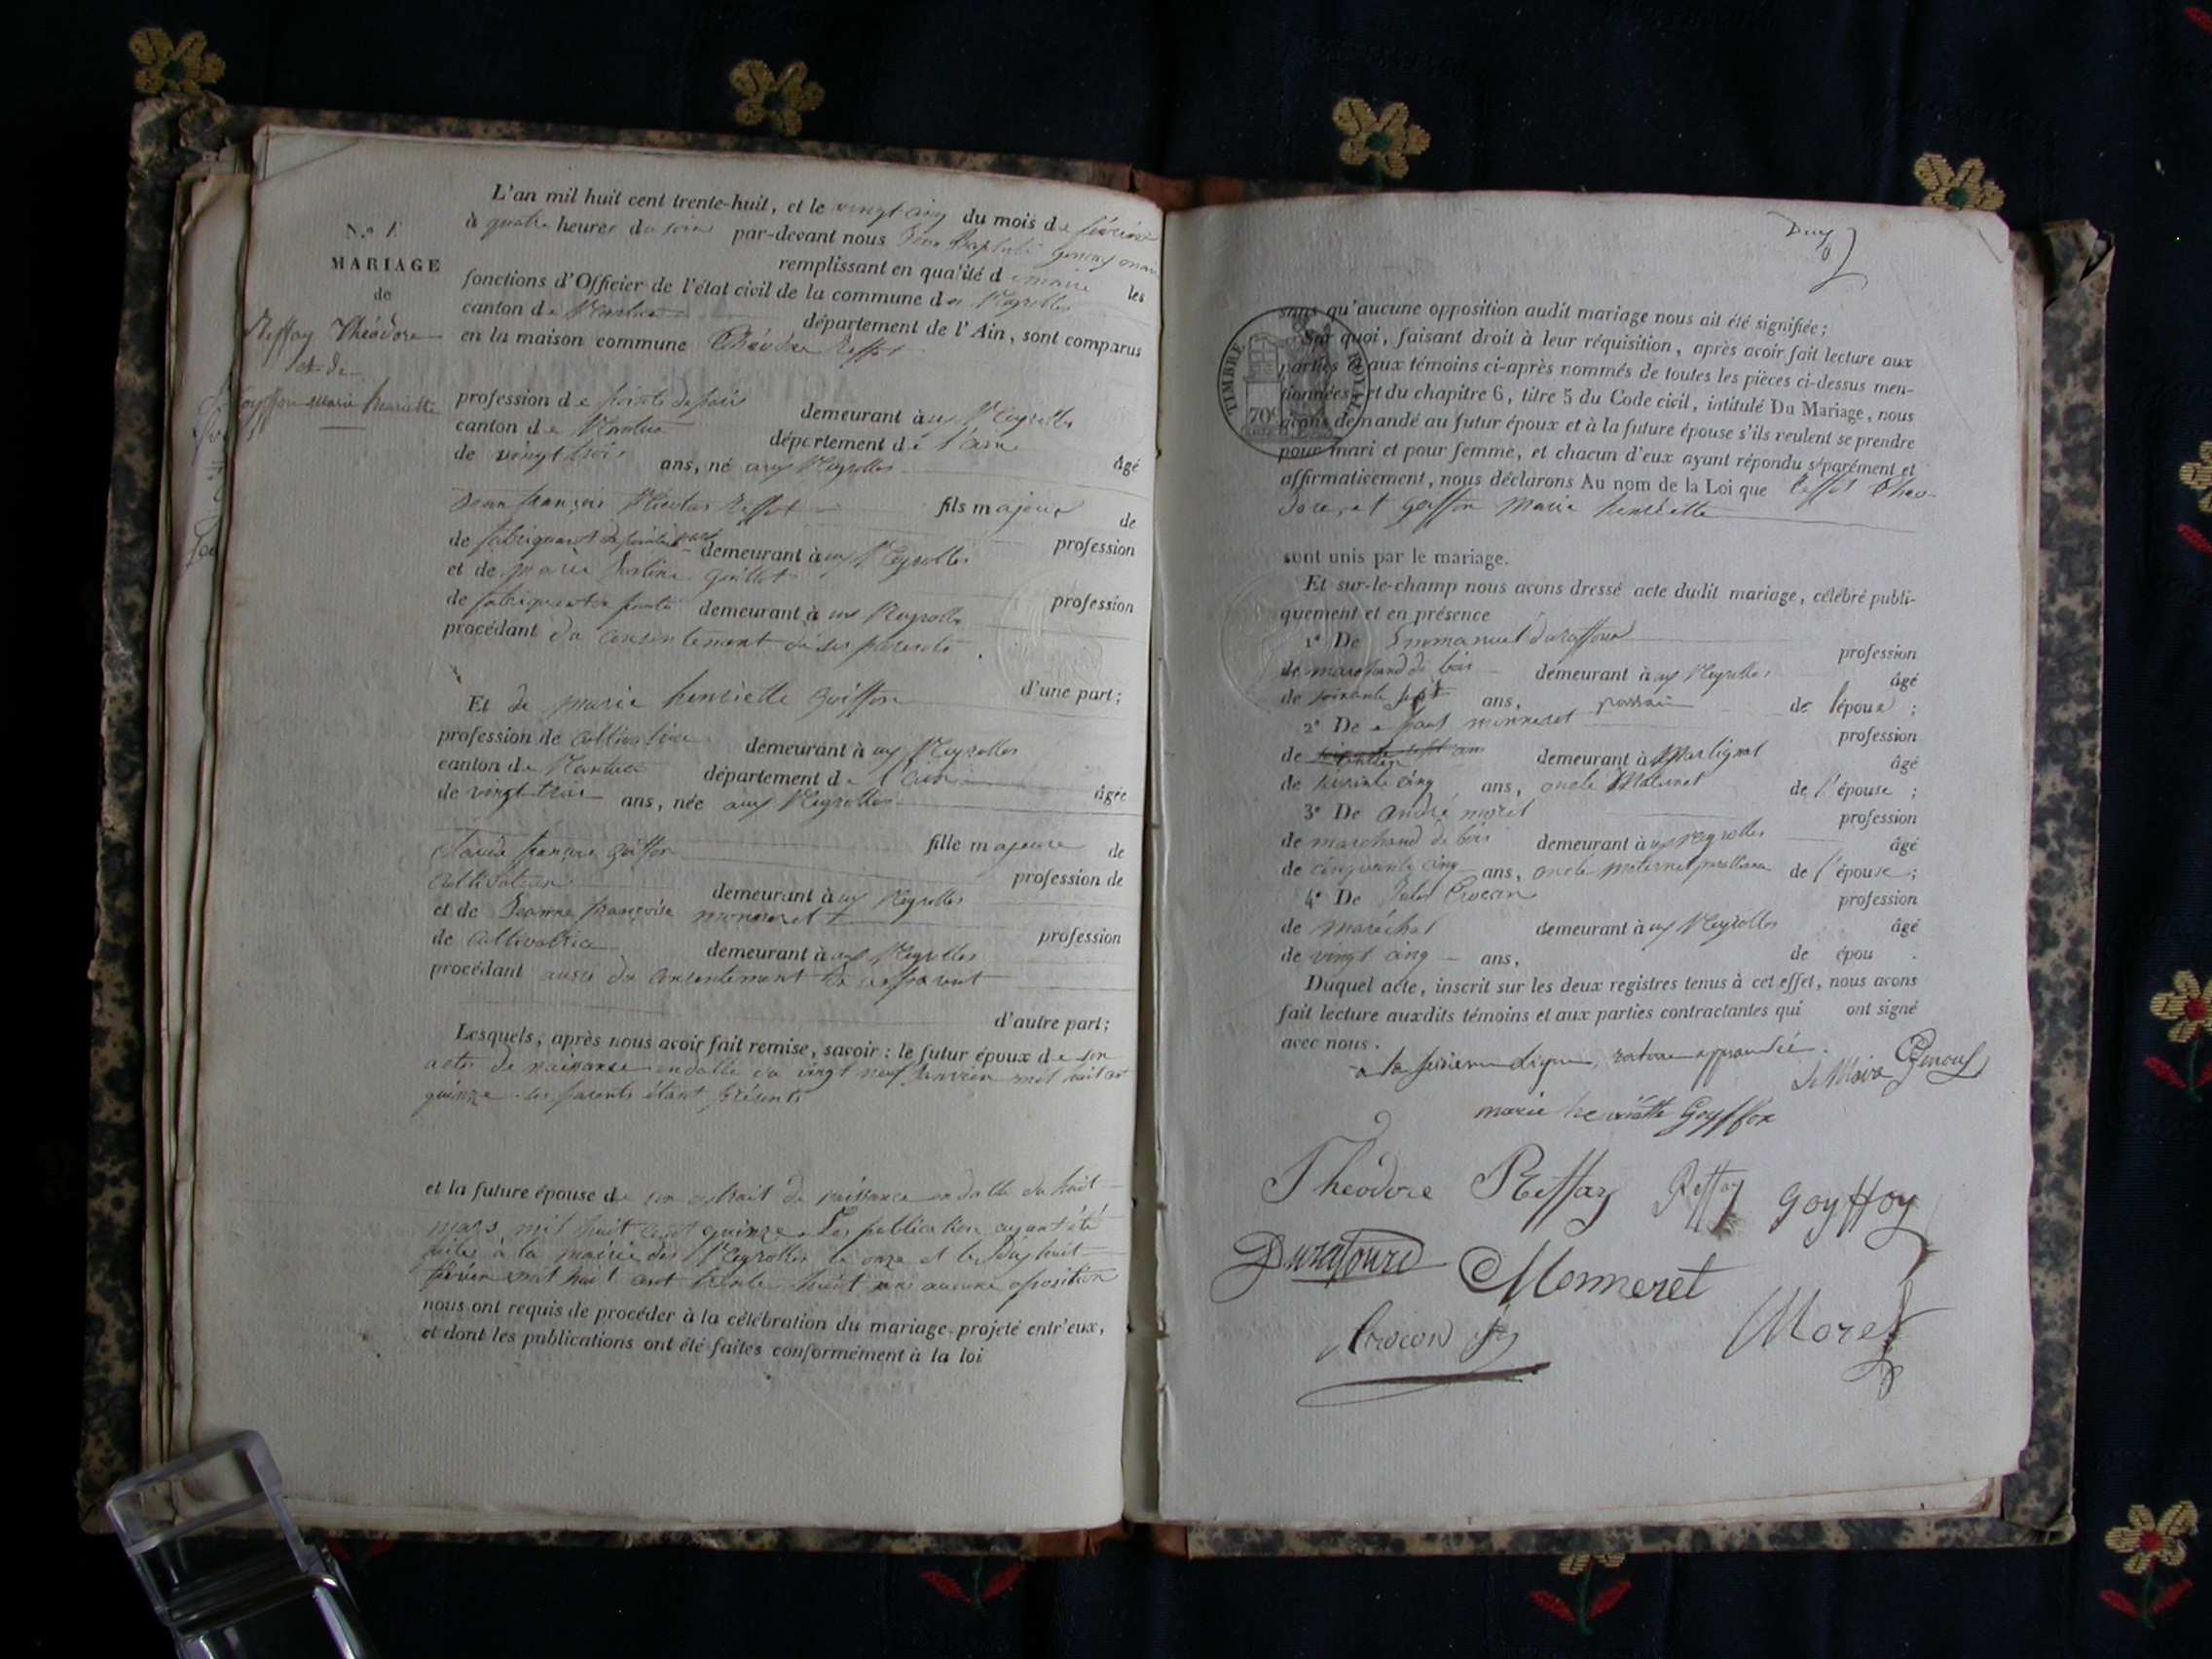 N.º 1er
MARIAGE
de
Reffay Théodore
et de
Goyffon Marie henriette
L'an mil huit cent trente-huit, et le vingt cinq du mois de février
à quatre heures du soir par-devant nous Baptiste
remplissant en qualité de maire les
fonctions d'Officier de l'état civil de la commune des Neyrolles
canton de Nantua département de l'Ain, sont comparus
en la maison commune Théodore
profession de demeurant aux Neyrolles
canton de Nantua département de l'ain
âgé
de vingt trois ans, né aux Neyrolles
fils majeur de
jean françois Nicolas profession
de fabriquant demeurant aux Neyrolles
et de marie
profession
de demeurant aux Neyrolles
procédant du consentement de ses parents
d'une part;
Et de marie henriette goiffon
profession de cultivatrice demeurant aux Neyrolles
canton de Nantua département de l'ain
âgée
de vingt trois ans, née aux Neyrolles
fille majeure de
françois goiffon profession de
cultivateur demeurant aux Neyrolles
et de Jeanne françoise monneret
profession
de cultivatrice demeurant aux Neyrolles
procédant aussi du consentement de
d'autre part;
Lesquels, après nous avoir fait remise, savoir: le futur époux de son
acte de naissance en datte du vingt neuf janvier mil huit cent
quinze ses parents étant présents
et la future épouse de son extrait de naissance en datte du huit
mars mil huit cent quinze. Les publication ayant été
faites à la mairie des Neyrolles le onze et le dix huit
février mil huit cent trente huit aucune oposition
nous ont requis de procéder à la célébration du mariage projeté entr'eux,
et dont les publications ont été faites conformément à la loi
TIMBRE ROYAL
70c
sans qu'aucune opposition audit mariage nous ait été signifiée;
Sur quoi, faisant droit à leur réquisition, après avoir fait lecture aux
parties et aux témoins ci-après nommés de toutes les pièces ci-dessus men-
tionnées, et du chapitre 6, titre 5 du Code civil, intitulé Du Mariage, nous
avons demandé au futur époux et à la future épouse s'ils veulent se prendre
pour mari et pour femme, et chacun d'eux ayant répondu séparément et
affirmativement, nous déclarons Au nom de la Loi que Théo-
dore, et goiffon Marie henriette
sont unis par le mariage.
Et sur-le-champ nous avons dressé acte dudit mariage, célébré publi-
quement et en présence
1º De Emmanuel duraffour
profession
de marchand de bois demeurant aux Neyrolles âgé
de soixante sept ans, de l'époux;
2º De paul monneret profession
de demeurant à Martignat âgé
de cinq ans, oncle Maternel de l'épouse;
3º De andré moret profession
de marchand de bois demeurant aux neyrolles âgé
de cinquante cinq ans, oncle maternel de l'épouse;
4º De Jules Crocon profession
de maréchal demeurant aux Neyrolles âgé
de vingt cinq ans, de épou .
Duquel acte, inscrit sur les deux registres tenus à cet effet, nous avons
fait lecture auxdits témoins et aux parties contractantes qui ont signé
avec nous.
ligne, rature approuvée.
Le Maire
marie henriette Goyffon
Théodore Reffay Reffay Goyffon
Duraffourd Monneret
Crocon Moret